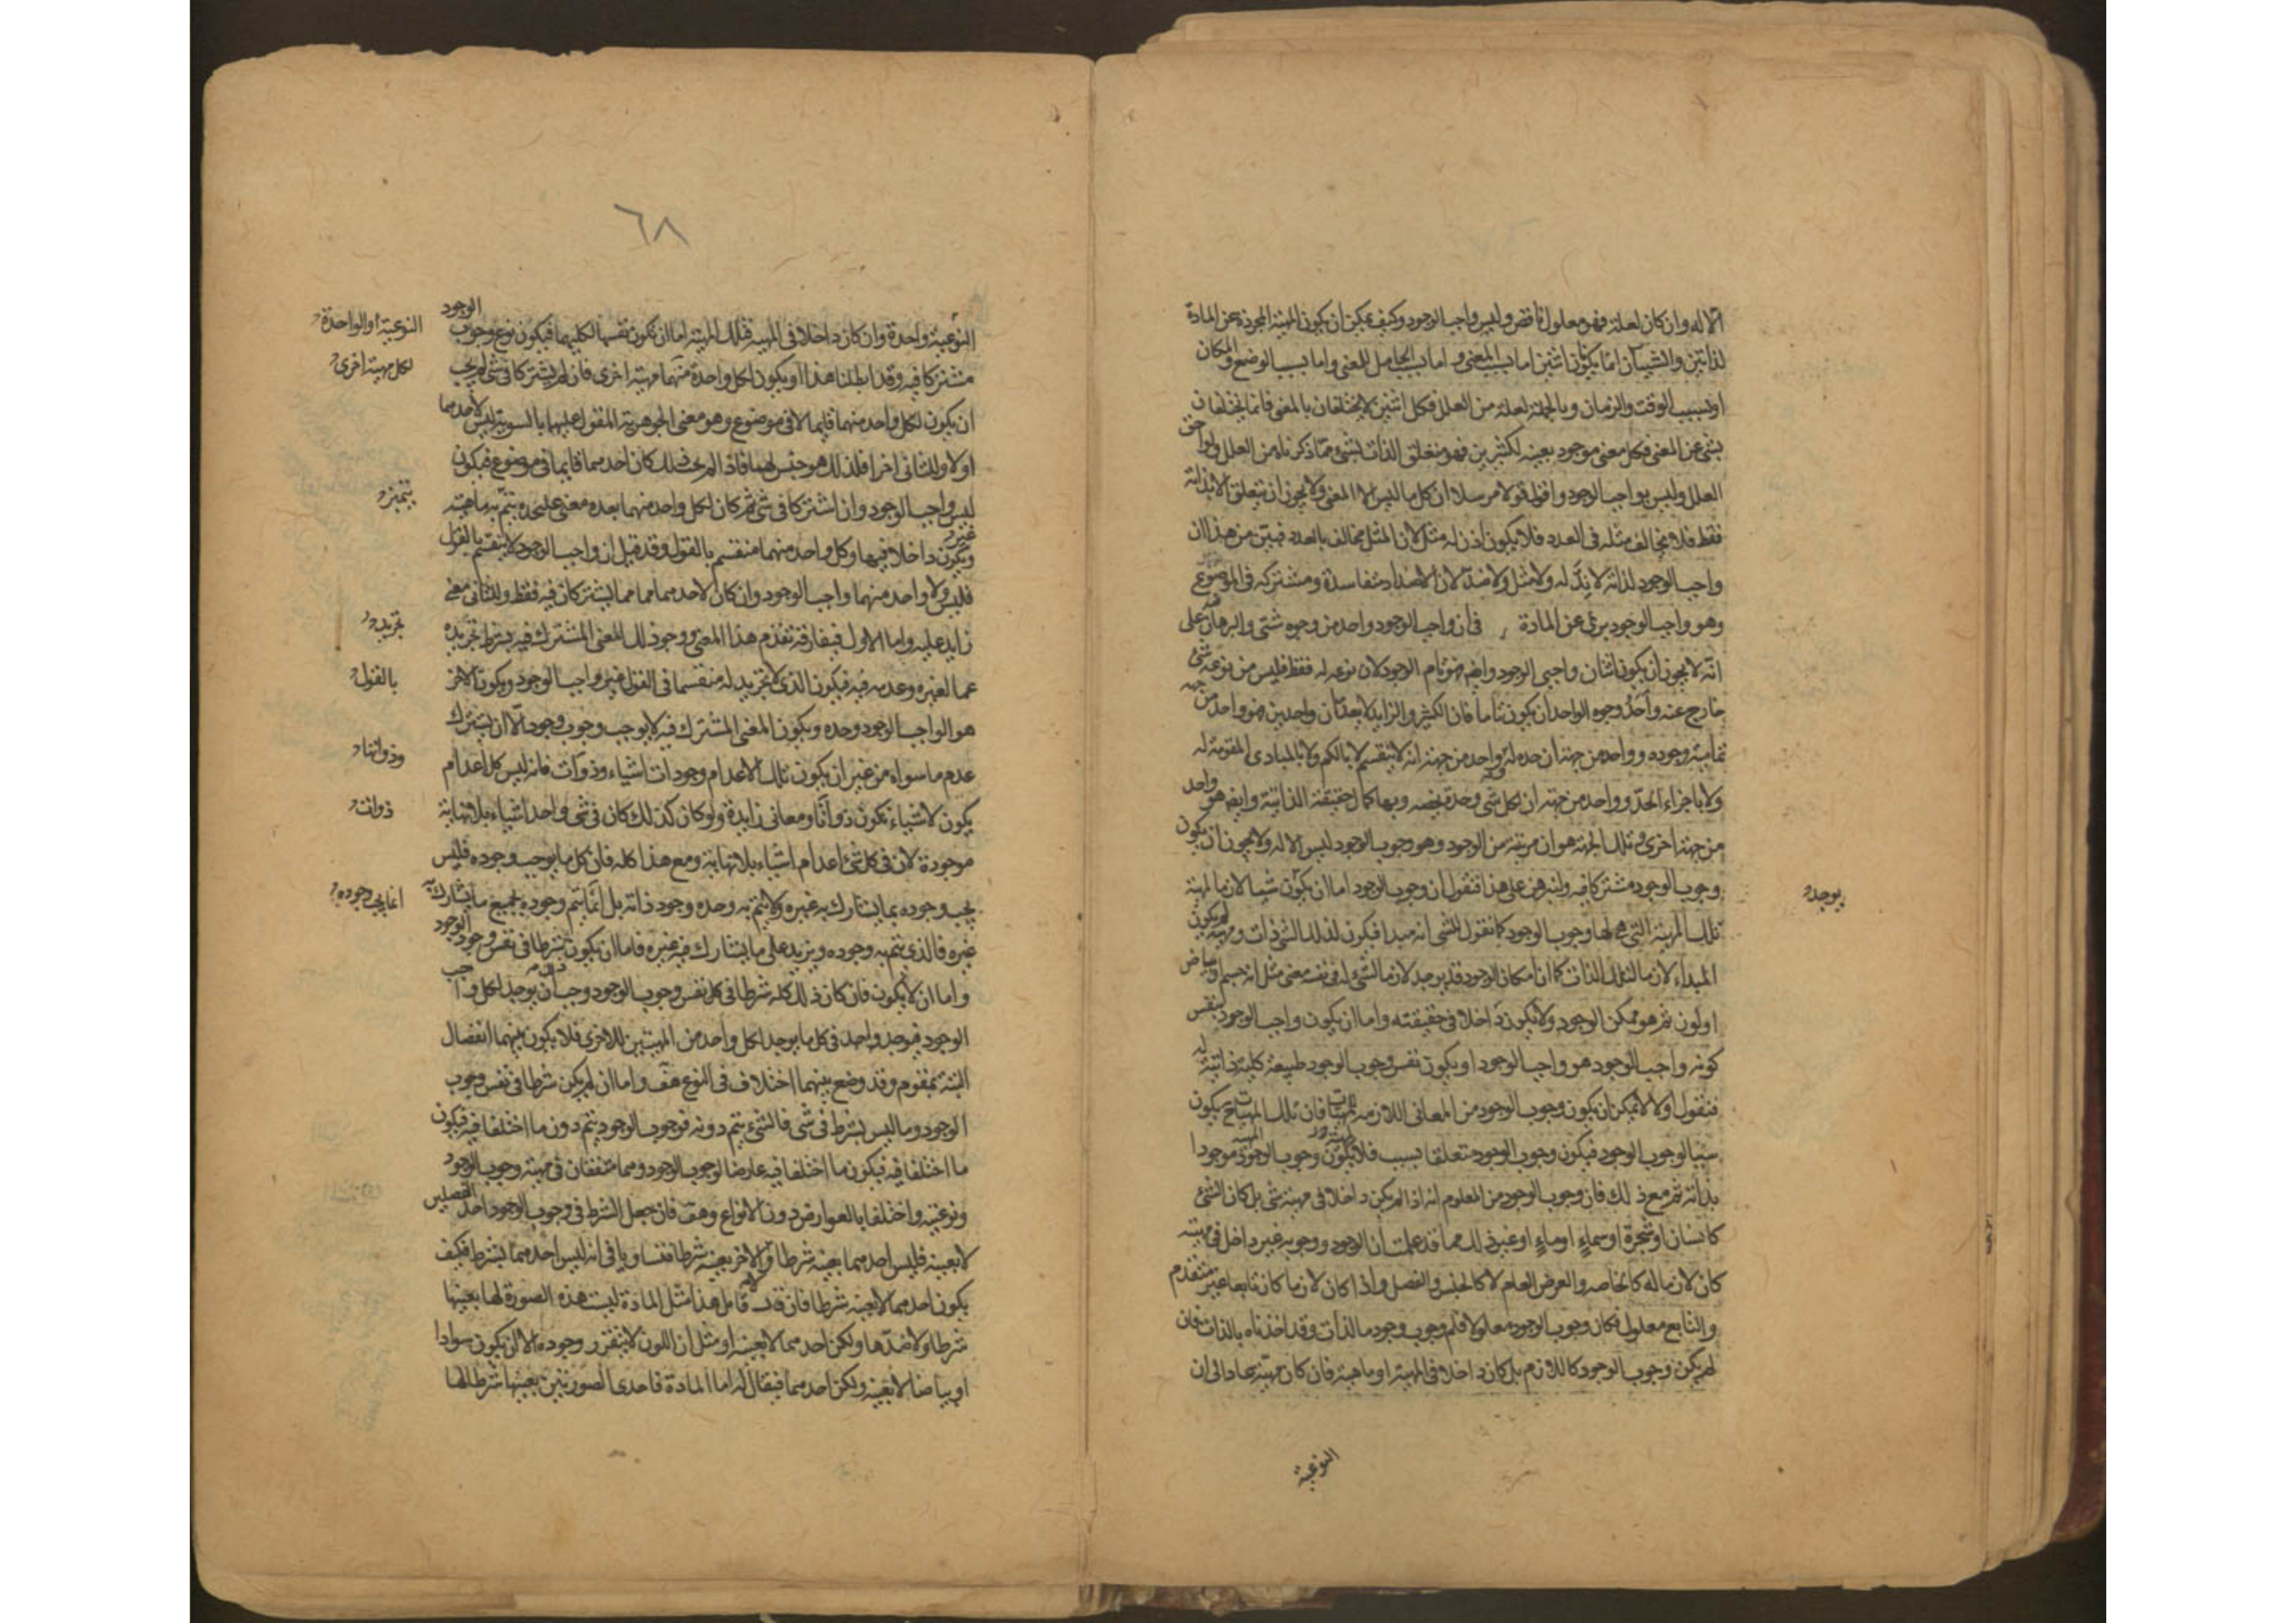 الا له وان كان لعلة فهو معلول ناقص وليس واجب الوجود وكيف يمكن ان يكون المهية المجردة عن المادة
لذاتين والشيئان انما يكونان اثنين اما بسبب المعنى واما بسبب الحامل للمعنى واما بسبب الوضع والمكان
او بسبب الوقت والزمان وبالجملة لعلة من العلل فكل اثنين لا يختلفان بالمعنى فانما يختلفان
بشئ عن المعنى فكل معنى موجود بعينه لكثيرين فهو متعلق الذات بشئ مما ذكرناه من العلل ولواحق
العلل وليس بواجب الوجود واقول قولا مرسلا ان كل ما ليس الا المعنى ولا يجوز ان يتعلق الا بذاته
فقط فلا يخالف مثله فى العدد فلا يكون اذن له مثل لان المثل مخالف بالعدد فبين من هذا ان
واجب الوجود لذاته لا ند له ولا مثل ولا ضد لان الاضداد متفاسدة ومشتركه فى الموضوع
وهو واجب الوجود برئ عن المادة فى ان واجب الوجود واحد من وجوه شتى والبرهان على
انه لا يجوز ان يكون اثنان واجبى الوجود وايضا فهو تام الوجود لان نوعه له فقط فليس من نوعه شئ
خارج عنه واحد وجوه الواحد ان يكون تاما فان الكثير والزايد لا يعدان واحدين فهو واحد من جهة
تمامية وجوده وواحد من جهة ان حده له وواحد من جهة انه لا ينقسم لا بالكم ولا بالمبادى المقومة له
ولا باجزاء الحد وواحد من جهة ان لكل شئ وحدة تخصه وبها كمال حقيقته الذاتية وايضا هو واحد
من جهة اخرى وتلك الجهة هو ان مرتبته من الوجود وهو وجوب الوجود ليس الا له ولا يجوز ان يكون
وجوب الوجود مشتركا فيه ولنبرهن على هذا فنقول ان وجوب الوجود اما ان يكون شيئا لازما لمهية
تلك المهية التى لها وجوب الوجود كما نقول للشئ انه مبدا فيكون لذلك الشئ ذات ومهية ثم يكون
المبداء لازما لتلك الذات كما ان امكان الوجود قد يوجد لازما لشئ له فى نفسه معنى مثل انه جسم او بياض
او لون ثم هو ممكن الوجود ولا يكون داخلا فى حقيقته واما ان يكون واجب الوجود بنفس
كونه واجب الوجود هو واجب الوجود او يكون نفس وجوب الوجود طبيعة كلية ذاتية له
فنقول اولا لا يمكن ان يكون وجوب الوجود من المعانى اللازمه للمهيات فان تلك المهية ح يكون
سببا لوجوب الوجود فيكون وجوب الوجود متعلقا بسبب فلا يكون وجوب الوجود موجودا
بذاته ثم مع ذلك فان وجوب الوجود من المعلوم انه اذا لم يكن داخلا فى مهية شئ بل كان الشئ
كانسان او شجرة او سماء او ماء او غير ذلك مما قد علمت ان الوجود ووجوبه غير داخل فى مهيته
كان لازما له كالخاصه والعرض العام لا كالجنس والفصل واذا كان لازما كان تابعا غير متقدم
والتابع معلول فكان وجوب الوجود معلولا فلم وجوب وجود ما لذات وقد اخذناه بالذات فان
لم يكن وجوب الوجود كاللازم بل كان داخلا فى المهية او ماهية فان كان مهية عاد الى ان
النوعية
يوجد
٦٨
النوعية واحدة وان كان داخلا فى المهية فتلك المهية اما ان تكون نفسها لكليهما فيكون نوع وجوب الوجود
مشتركا فيه وقد ابطلنا هذا او يكون لكل واحدة منهما مهية اخرى فان لم يشتركا فى شئ لم يجب
ان يكون لكل واحد منهما قايما لا فى موضوع وهو معنى الجوهرية المقول عليهما بالسوية ليس لاحدهما
اولا وللثانى اخرا فلذلك هو جنس لهما فاذا لم يجب ذلك كان احدهما قايما فى موضوع فيكون
ليس واجب الوجود وان اشتركا فى شئ ثم كان لكل واحد منهما بعده معنى على حدة يتم به ماهيته
ويكون داخلا فيها وكل واحد منهما منقسم بالقول وقد قيل ان واجب الوجود لا ينقسم بالقول
فليس ولا واحد منهما واجب الوجود وان كان لاحدهما ما يشتركان فيه فقط وللثانى معنى
زايد عليه واما الاول فيفارقه بعدم هذا المعنى ووجود ذلك المعنى المشترك فيه بشرط تجريده
عما لغيره وعدمه فيه فيكون الذى لا تجريد له منقسما فى القول غير واجب الوجود ويكون الاخر
هو الواجب الوجود وحده ويكون المعنى المشترك فيه لا يوجب وجوب وجود الا ان يشترك
عدم ما سواه من غير ان يكون تلك الاعدام وجودات اشياء وذوات فانه ليس كل اعدام
يكون لاشياء تكون ذواتا ومعانى زايدة ولو كان كذلك كان فى شئ واحد اشياء بلا نهاية
موجودة لان فى كل شئ اعدام اشياء بلا نهاية ومع هذا كله فان كل ما يوجب وجوده فليس
يجب وجوده بما يشارك به غيره ولا يتم به وحده وجود ذاته بل انما يتم وجوده بجميع ما يشارك به
غيره فالذى يتم به وجوده ويزيد على ما يشارك فيه غيره فاما ان يكون شرطا فى نفس وجوب الوجود
واما ان لا يكون فان كان ذلك كله شرطا فى كل نفس وجوب الوجود وجب ان يوجد لكل واجب
الوجود فيوجد واحد فى كل ما يوجد لكل واحد من المهيتين للاخرى فلا يكون بينهما انفصال
البتة بمقوم وقد وضع بينهما اختلاف فى النوع هف واما ان لم يكن شرطا فى نفس وجوب
الوجود وما ليس بشرط فى شئ فالشئ يتم دونه فوجوب الوجود يتم دون ما اختلفا فيه فيكون
ما اختلفا فيه فيكون ما اختلفا فيه عارضا لوجوب الوجود وهما متفقان فى مهية وجوب الوجود
ونوعيته واختلفا بالعوارض دون الانواع وهف فان جعل الشرط فى وجوب الوجود احد الفصلين
لا بعينه فليس احدهما بعينه شرطا ولا الاخر بعينه شرطا فتساويا فى انه ليس احدهما بشرط فكيف
يكون احدهما لا بعينه شرطا فان قال قايل هذا مثل المادة ليست هذه الصورة لها بعينها
شرطا ولا ضدها ولكن احدهما لا بعينه او مثل ان اللون لا يتقرر وجوده الا ان يكون سوادا
او بياضا لا بعينه ولكن احدهما فيقال له اما المادة فاحدى الصورتين بعينها شرط لها
النوعية او الواحدة
لكل مهية اخرى
يتميز
تجريد
بالقول
وذواتها
ذوات
انما يجب وجوده